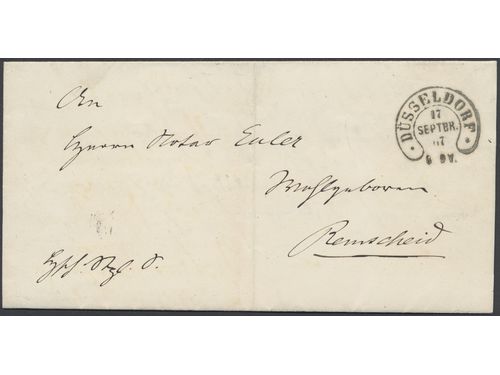 An
Herrn Notar Euler
Wohlgeboren
Remscheid
DÜSSELDORF
17
SEPTBR.
67